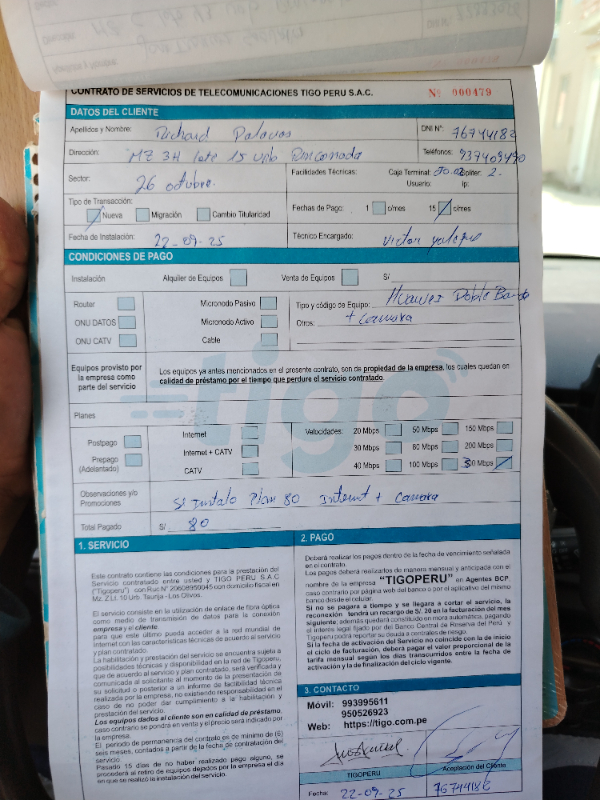 CONTRATO DE SERVICIOS DE TELECOMUNICACIONES TIGO PERU S.A.C. Nº 000479
DATOS DEL CLIENTE
Apellidos y Nombre: Richard Palacios DNI N°: 76744182
Dirección: MZ 3H lote 15 urb Rinconada Teléfonos: 937409490
Sector: 26 octubre. Facilidades Técnicas: Caja Terminal: Spliter: 2.
Usuario: Ip:
Tipo de Transacción:
Nueva Migración Cambio Titularidad Fechas de Pago: 1 c/mes 15 c/mes
Fecha de Instalación: 22-09-25 Técnico Encargado: Victor
CONDICIONES DE PAGO
Instalación Alquiler de Equipos Venta de Equipos S/
Router Micronodo Pasivo Tipo y código de Equipo: Huawei Doble Banda
ONU DATOS Micronodo Activo Otros: + Camara
ONU CATV Cable
Equipos provisto por la empresa como parte del servicio
Los equipos ya antes mencionados en el presente contrato, son de propiedad de la empresa, los cuales quedan en
calidad de préstamo por el tiempo que perdure el servicio contratado.
tigo
Planes
Postpago Internet Velocidades: 20 Mbps 50 Mbps 150 Mbps
Prepago (Adelantado) Internet + CATV 30 Mbps 80 Mbps 200 Mbps
CATV 40 Mbps 100 Mbps Mbps
Observaciones y/o
Promociones Se Instalo Plan 80 Internet + Camara
Total Pagado S/ 80
1. SERVICIO
Este contrato contiene las condiciones para la prestación del
Servicio contratado entre usted y TIGO PERU S.A.C
("Tigoperu") con Ruc N° 20608950045 con domicilio fiscal en
Mz. Z Lt. 10 Urb. Taurija - Los Olivos.
El servicio consiste en la utilización de enlace de fibra óptica
como medio de transmisión de datos para la conexión
empresa y el cliente.
para que este último pueda acceder a la red mundial de
Internet con las características técnicas de acuerdo al servicio
y plan contratado.
La habilitación y prestación del servicio se encuentra sujeta a
posibilidades técnicas y disponibilidad en la red de Tigoperu,
que de acuerdo al servicio y plan contratado, será verificada y
comunicada al solicitante al momento de la presentación de
su solicitud o posterior a un informe de factibilidad técnica
realizada por la empresa, no existiendo responsabilidad en el
caso de no poder dar cumplimiento a la habilitación y
prestación del servicio.
Los equipos dados al cliente son en calidad de préstamo,
caso contrario se pondrá en venta y el precio será indicado por
la empresa.
El periodo de permanencia del contrato es de mínimo de (6)
seis meses, contados a partir de la fecha de contratación del
servicio.
Pasado 15 días de no haber realizado pago alguno, se
procederá al retiro de equipos dejados por la empresa el día
en que se realizó la instalación del servicio.
2. PAGO
Deberá realizar los pagos dentro de la fecha de vencimiento señalada
en el contrato.
Los pagos deberá realizarlos de manera mensual y anticipada con el
nombre de la empresa "TIGOPERU" en Agentes BCP,
caso contrario por página web del banco o por el aplicativo del mismo
banco desde el celular.
Si no se pagara a tiempo y se llegara a cortar el servicio, la
reconexión tendrá un recargo de S/. 30 en la facturación del mes
siguiente, además quedará constituido en mora automática, pagando
el interés legal fijado por el Banco Central de Reserva del Perú y
Tigoperu podrá reportar su deuda a centrales de riesgo.
Si la fecha de activación del Servicio no coincide con la de inicio
del ciclo de facturación, deberá pagar el valor proporcional de la
tarifa mensual según los días transcurridos entre la fecha de
activación y la de finalización del ciclo vigente.
3. CONTACTO
Móvil: 993995611
950526923
Web: https://tigo.com.pe
TIGOPERU Aceptación del Cliente
Fecha: 22-09-25 76744182